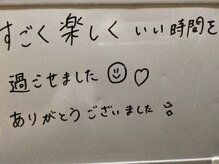 すごく楽しくいい時間を
過ごせました
ありがとうございました